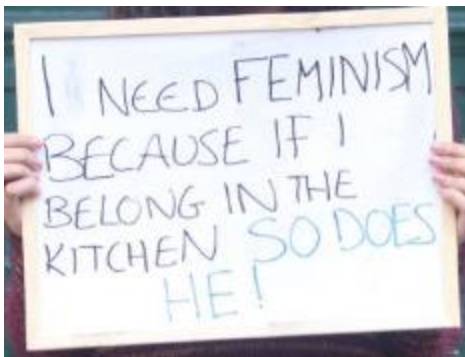 I NEED FEMINISM
BECAUSE IF I
BELONG IN THE
KITCHEN SO DOES
HE!